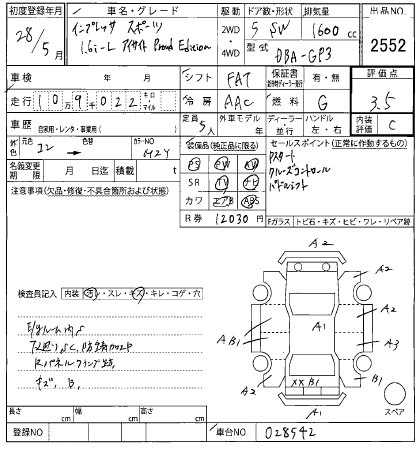 初度登録年月 車名・グレード 駆動 ドア数・形状 排気量 出品NO.
28/5月 インプレッサ スポーツ 2WD 5 SW 1600cc 2552
1.6i-L アイサイト Proud Edition 4WD 型式 DBA-GP3
車検 年 月 シフト FAT 保証書 有・無 評価点
走行 10万9千022 キロ マイル 冷房 AAC 燃料 G 3.5
車歴 自家用・レンタ・事業用( ) 定員 5人 外車モデル 年 ディーラー 並行 ハンドル 左・右 内装評価 C
外色 元色 コン 色替 カラーNO M2Y 装備品(純正品に限る) セールスポイント(正常に作動するもの)
PS PW SR TV ナビ カワ エアB ABS
Pスタート
クルーズコントロール
パドルシフト
名義変更期限 月 日迄 積載 t
注意事項(欠品・修復・不具合箇所および状態)
R券 12030円 Fガラス トビ石・キズ・ヒビ・ワレ・リペア跡
検査員記入 内装 汚レ・スレ・キズ・キレ・コゲ・穴
E/gルーム内S
下廻りSC
キズ、B、
A2
A2 A2
A B1 A1 A3
XX B1 B1
A1
スペア
長さ cm 幅 cm 高さ cm
登録NO 車台NO 028542